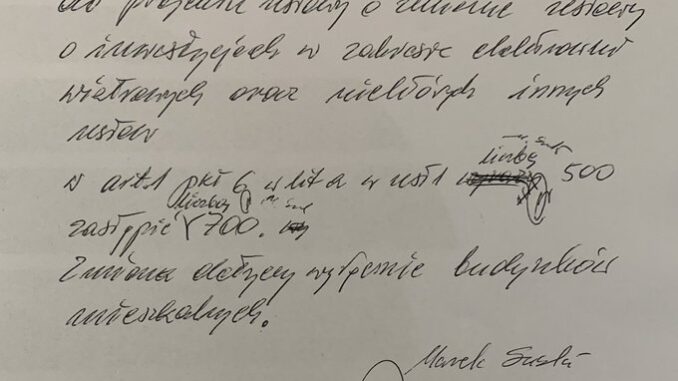 do projektu ustawy o zmianie ustawy
o inwestycjach w zakresie elektrowni
wiatrowych oraz niektórych innych
ustaw
liczbę
w art 1 pkt 6 w lit a w ust 1 500
liczbą
zastąpić 700.
Zmiana dotyczy wyłącznie budynków
mieszkalnych.
Marek Suski